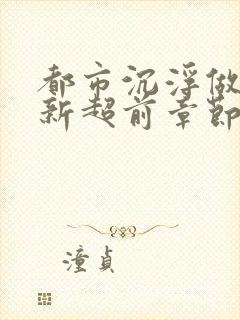 都市沉浮做
新超前章节
潼貞